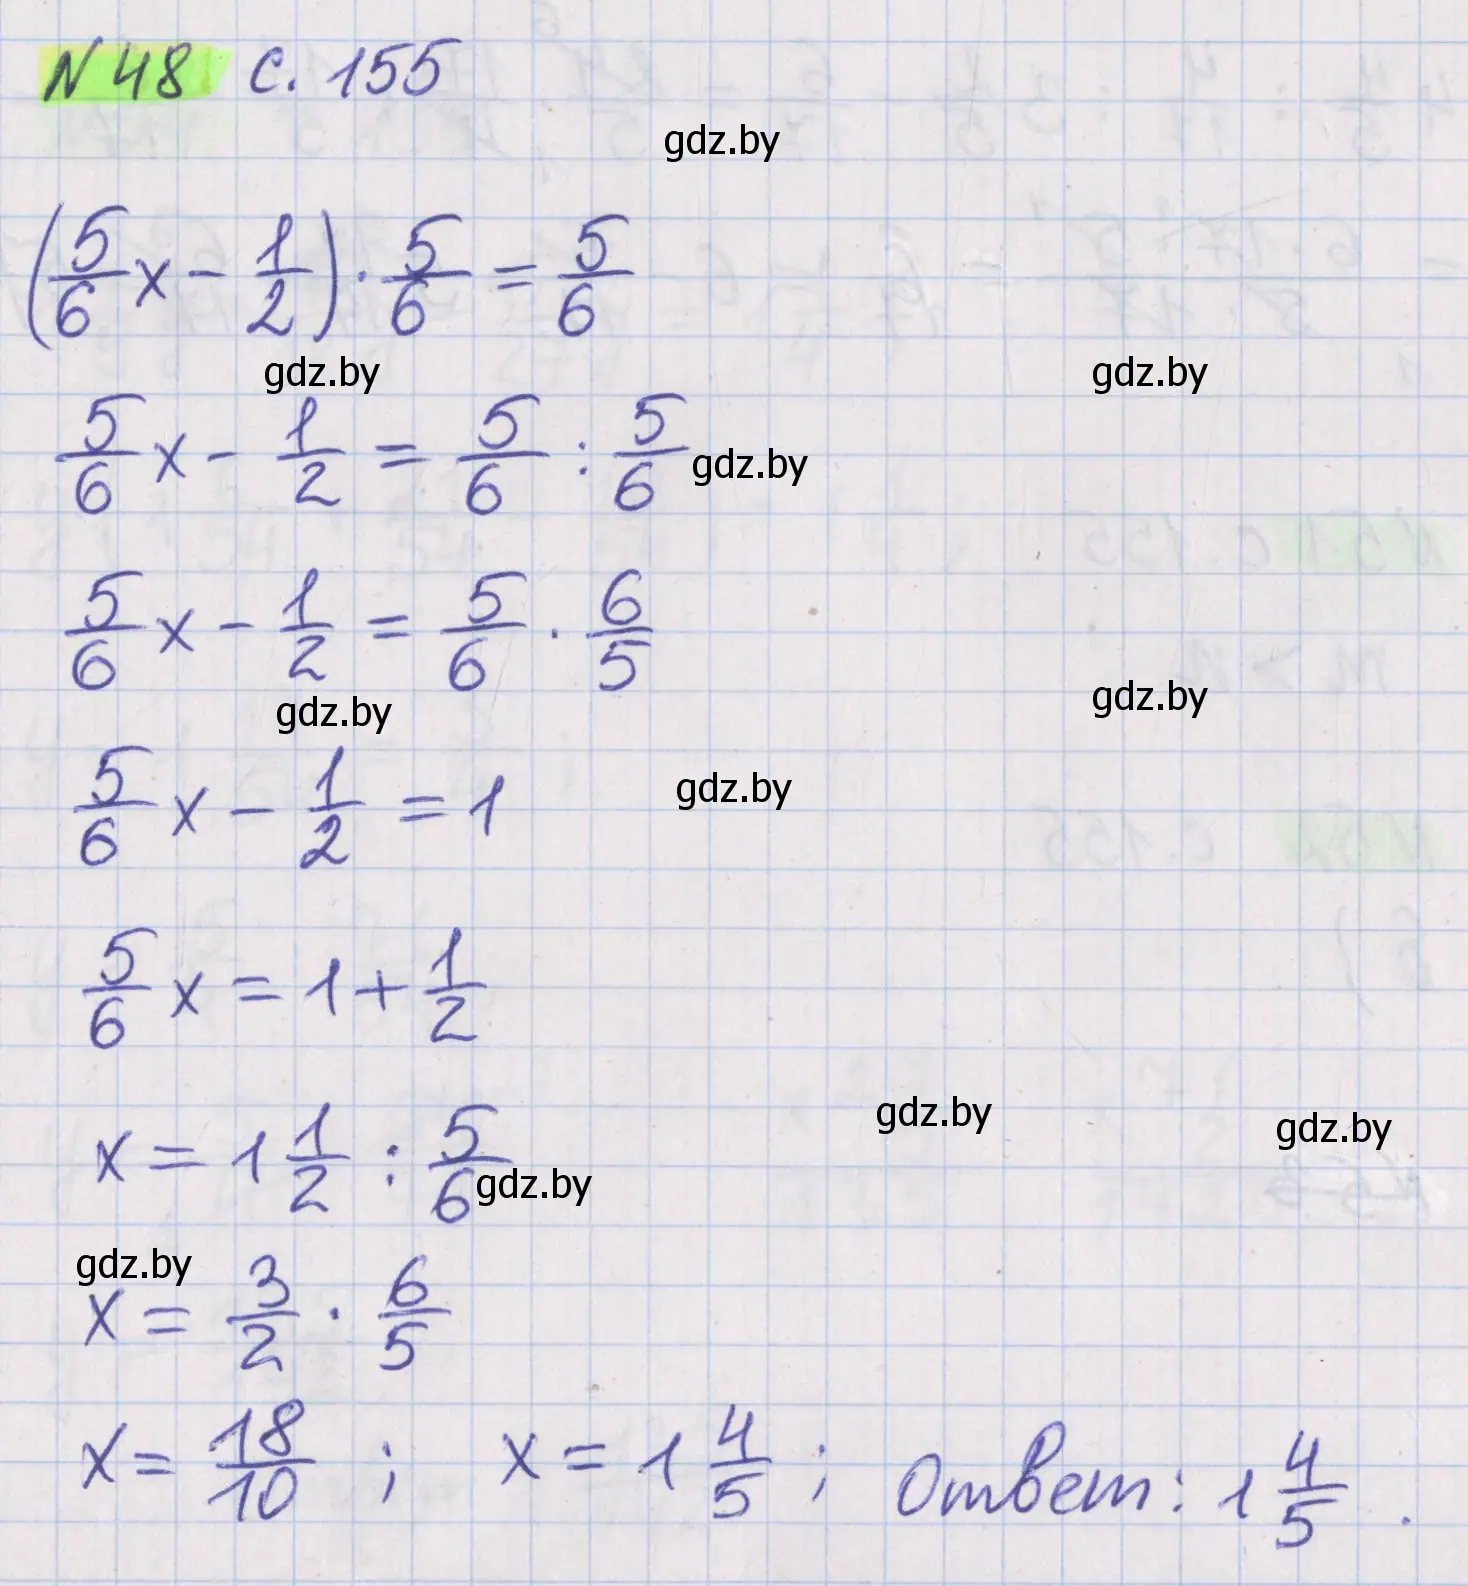 N 48 с. 155
gdz.by
(5/6 x - 1/2) · 5/6 = 5/6
gdz.by gdz.by
5/6 x - 1/2 = 5/6 : 5/6 gdz.by
5/6 x - 1/2 = 5/6 · 6/5
gdz.by gdz.by
5/6 x - 1/2 = 1 gdz.by
5/6 x = 1 + 1/2
gdz.by gdz.by
x = 1 1/2 : 5/6 gdz.by
gdz.by
x = 3/2 · 6/5
x = 18/10 ; x = 1 4/5 ; Ответ: 1 4/5 .